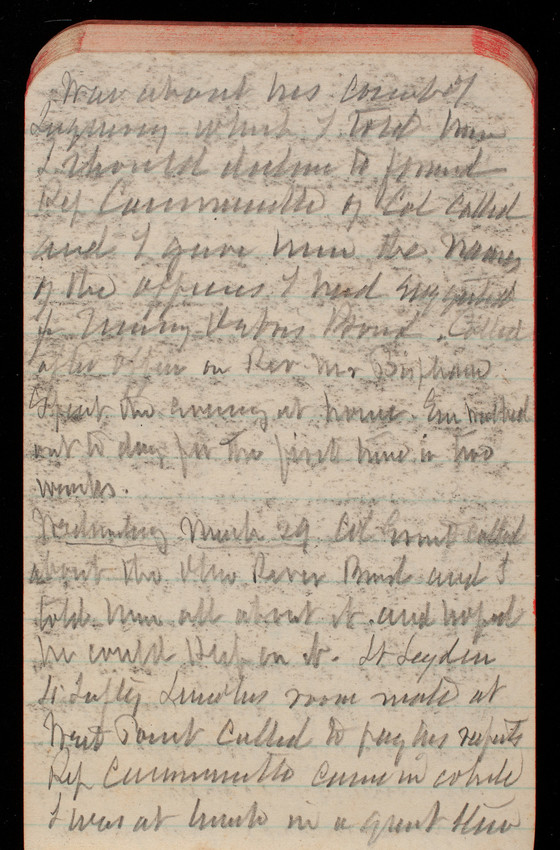 War about his Court of
Inquiry which I told him
I should decline to
Rep Cummings of Col called
and I gave him the names
of the officers I had suggested
for Harbor Board. Called
after office on Rev Mr
Spent the evening at home. Em walked
out to day for the first time in two
weeks.
Wednesday March 29. Col Grant called
about the Ohio River Board and I
told him all about it and hoped
he could be on it. Lt Leyden
Lt Lincolns room mate at
West Point called to pay his respects
Rep came in while
I was at lunch in a great stew